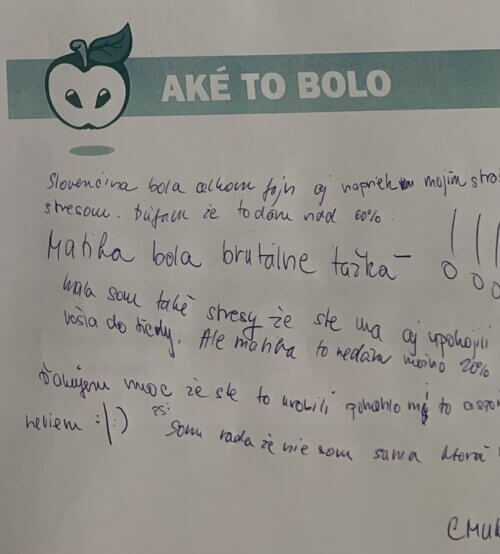 AKÉ TO BOLO
Slovenčina bola celkom fajn aj napriek mojim
stresom. Dúfam že to dám nad 60%.
Matika bola brutálne ťažká
!!!
Mala som také stresy že ste ma aj upokojili
do triedy. Ale matika to nedám možno 20%
Ďakujem moc že ste to urobili pomohlo mi to aspoň
neviem :| :)
PS: Som rada že nie som sama ktorá